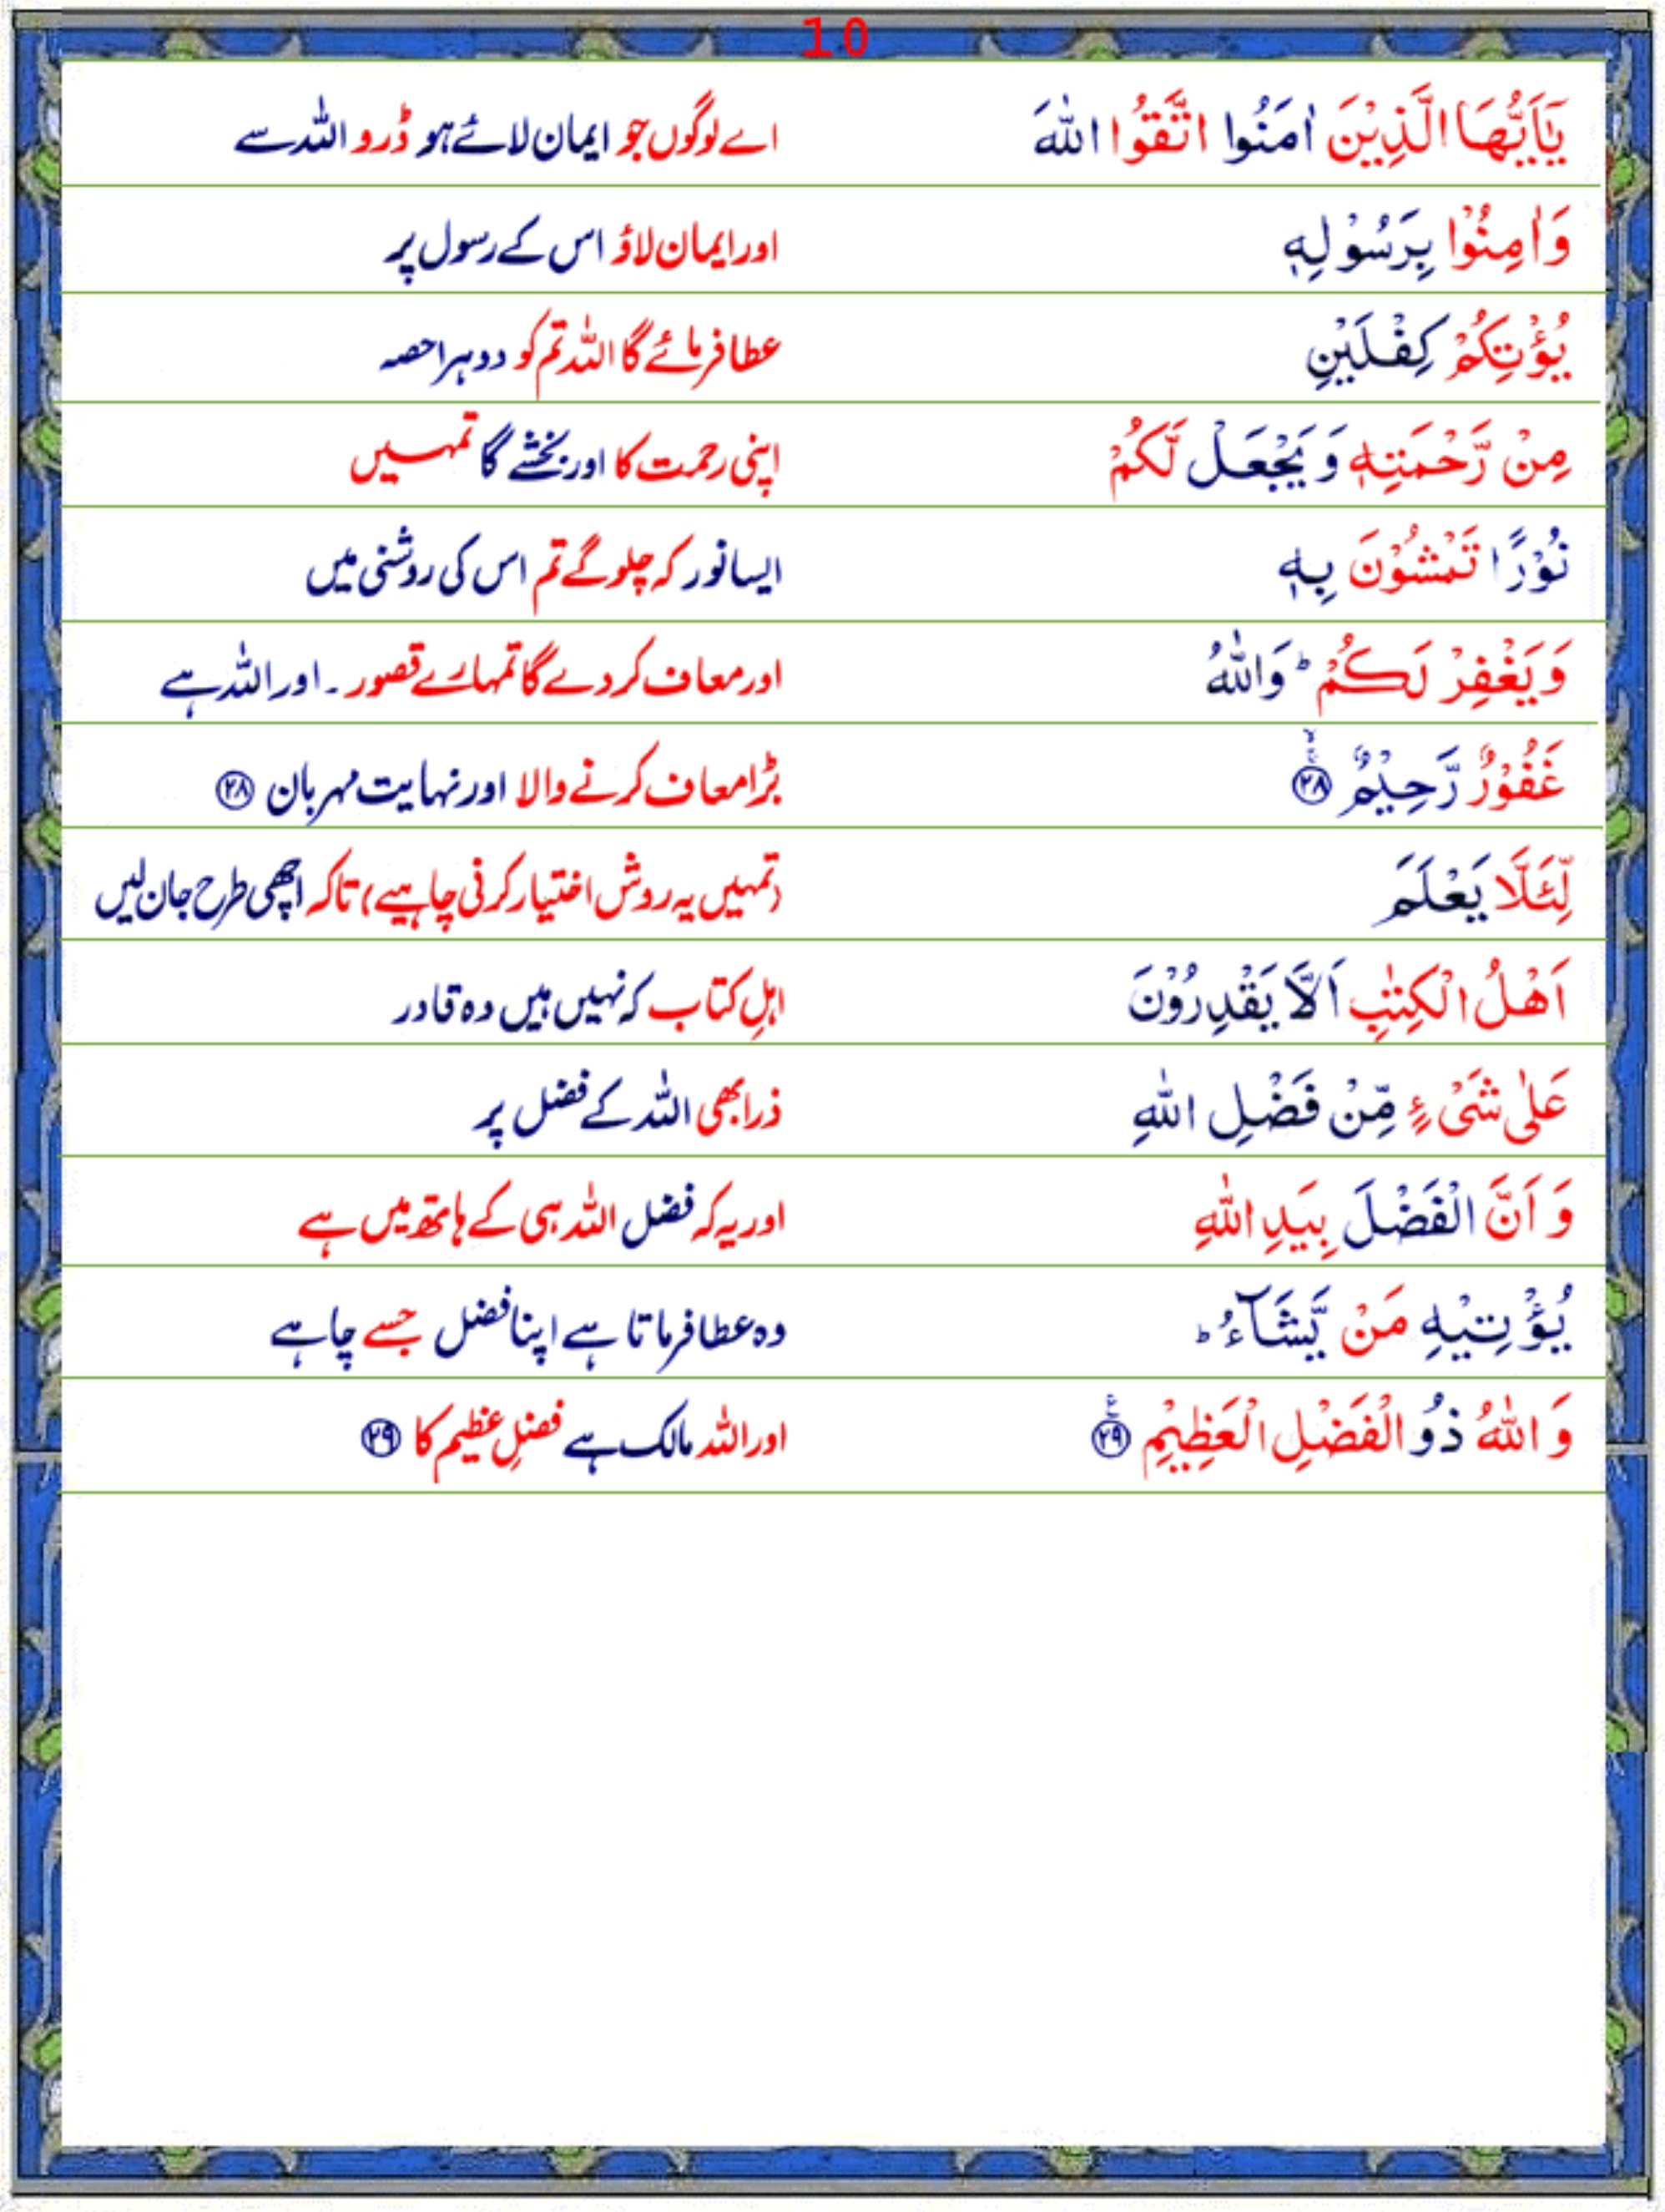 10
يٰٓاَيُّهَا الَّذِيْنَ اٰمَنُوا اتَّقُوا اللّٰهَ اے لوگوں جو ایمان لائے ہو ڈرو اللہ سے
وَاٰمِنُوْا بِرَسُوْلِهٖ اور ایمان لاؤ اس کے رسول پر
يُؤْتِكُمْ كِفْلَيْنِ عطا فرمائے گا اللہ تم کو دوہرا حصہ
مِنْ رَّحْمَتِهٖ وَيَجْعَلْ لَّكُمْ اپنی رحمت کا اور بخشے گا تمہیں
نُوْرًا تَمْشُوْنَ بِهٖ ایسا نور کہ چلو گے تم اس کی روشنی میں
وَيَغْفِرْ لَكُمْ ؕ وَاللّٰهُ اور معاف کر دے گا تمہارے قصور ۔ اور اللہ ہے
غَفُوْرٌ رَّحِيْمٌ ۙ ﴿۲۸﴾ بڑا معاف کرنے والا اور نہایت مہربان ﴿۲۸﴾
لِّئَلَّا يَعْلَمَ (تمہیں یہ روش اختیار کرنی چاہیے) تاکہ اچھی طرح جان لیں
اَهْلُ الْكِتٰبِ اَلَّا يَقْدِرُوْنَ اہلِ کتاب کہ نہیں ہیں وہ قادر
عَلٰى شَىْءٍ مِّنْ فَضْلِ اللّٰهِ ذرا بھی اللہ کے فضل پر
وَ اَنَّ الْفَضْلَ بِيَدِ اللّٰهِ اور یہ کہ فضل اللہ ہی کے ہاتھ میں ہے
يُؤْتِيْهِ مَنْ يَّشَآءُ ؕ وہ عطا فرماتا ہے اپنا فضل جسے چاہے
وَ اللّٰهُ ذُو الْفَضْلِ الْعَظِيْمِ ﴿۲۹﴾ ع اور اللہ مالک ہے فضلِ عظیم کا ﴿۲۹﴾